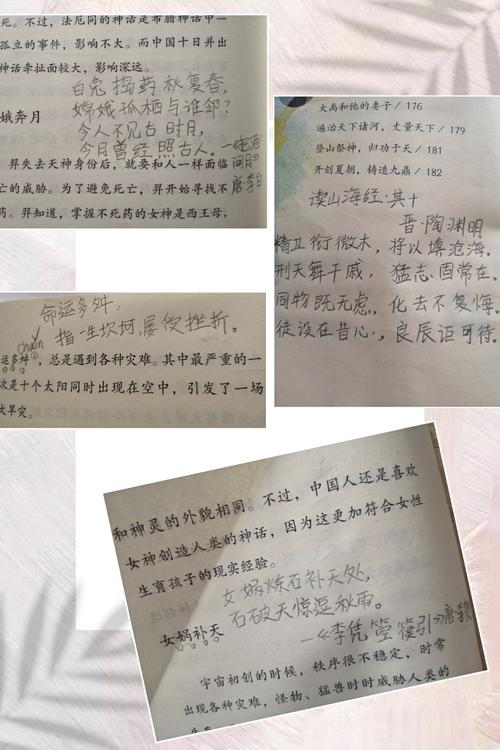 死。不过，法厄同的神话是希腊神话中一
孤立的事件，影响不大。而中国十日并出
神话牵扯面较大，影响深远。
白兔捣药秋复春，
嫦娥孤栖与谁邻？
今人不见古时月，
今月曾经照古人。—《把酒
问月》
唐李白
娥奔月
羿失去天神身份后，就要和人一样面临
亡的威胁。为了避免死亡，羿开始寻找不
药。羿知道，掌握不死药的女神是西王母，
大禹和他的妻子 / 176
遍治天下诸河，丈量天下 / 179
登山祭神，归功于天 / 181
开创夏朝，铸造九鼎 / 182
读山海经·其十
晋·陶渊明
精卫衔微木，将以填沧海。
刑天舞干戚，猛志固常在。
同物既无虑，化去不复悔。
徒设在昔心，良辰讵可待。
命运多舛：
指一生坎坷，屡受挫折。
chuǎn
运多舛①，总是遇到各种灾难。其中最严重的一
次是十个太阳同时出现在空中，引发了一场
大旱灾。
和神灵的外貌相同。不过，中国人还是喜欢
女神创造人类的神话，因为这更加符合女性
生育孩子的现实经验。
女娲炼石补天处，
石破天惊逗秋雨。
—《李凭箜篌引》唐
女娲补天
宇宙初创的时候，秩序很不稳定，时常
出现各种灾难，怪物、猛兽时时威胁人类的